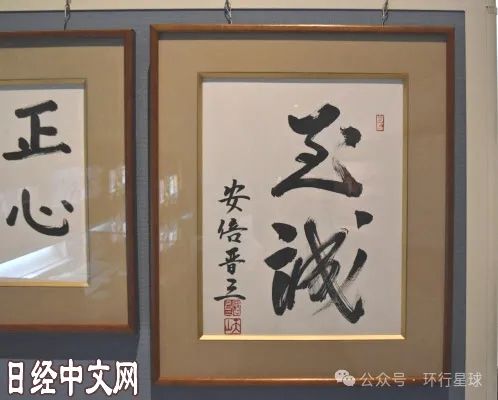 正心
至誠
安倍晋三
日经中文网
公众号·环行星球